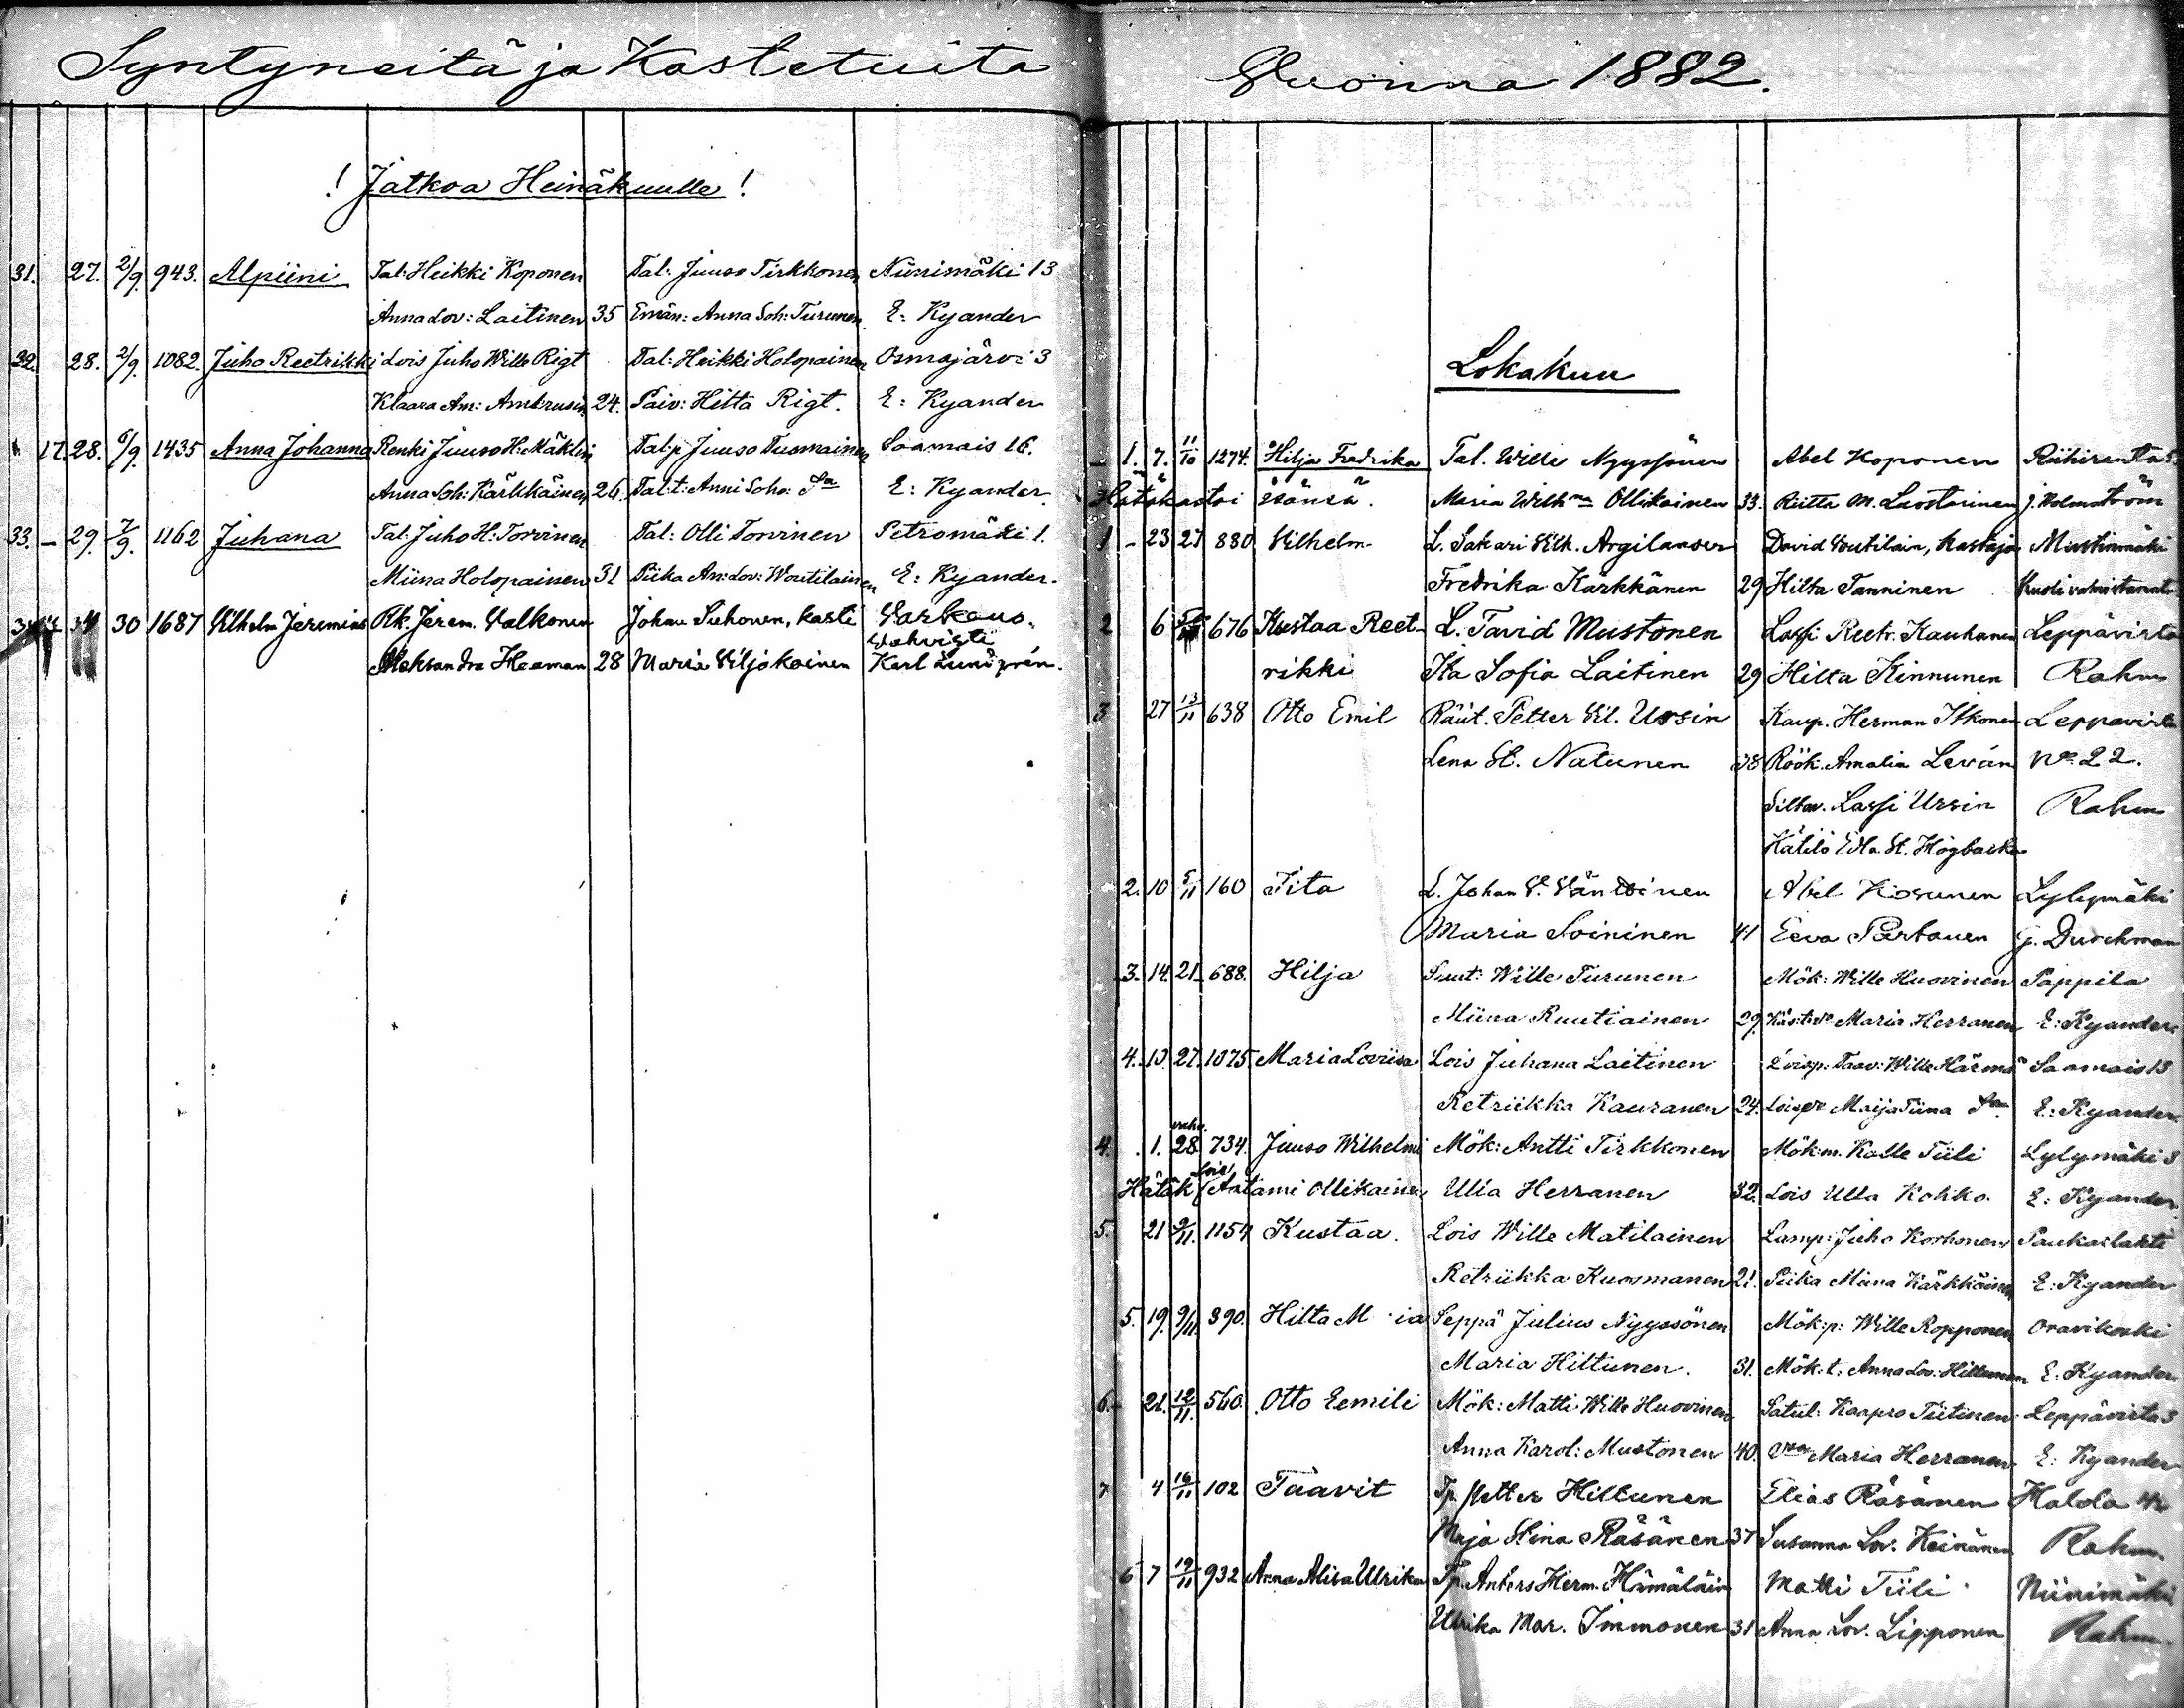 Syntyneitä ja Kastetuita
! Jatkoa Heinäkuulle !
31. 27. 2/9. 943. Alpiini Tal: Heikki Koponen Tal: Juuso Tirkkonen Niinimäki 13
Anna Lov: Laitinen 35 Emän: Anna Soh: Turunen E: Kyander
32. 28. 2/9. 1082. Juho Reetrikki Lois Juho Wille Rigt Tal: Heikki Holopainen Osmajärvi 3
Klaara Am: Ambrusin 24. Paiv: Hilta Rigt. E: Kyander
17. 28. 6/9. 1435 Anna Johanna Renki Juuso H: Mäklin Tal:p Juuso Tuomainen Saamais 16.
Anna Soh: Kärkkäinen 26. Tal:t: Anni Soho: E: Kyander
33. – 29. 7/9. 1162 Juhana Tal: Juho H: Torvinen Tal: Olli Torvinen Petromäki 1.
Miina Holopainen 31 Piika An: Lov: Woutilainen E: Kyander.
30 1687 Vilhelm Jeremias Rk. Jerem. Valkonen Johan Suhonen, kasti Varkaus.
vahvisti
Aleksandra Heaman 28 Maria Viljakainen Karl
Vuonna 1882.
Lokakuu
1. 7. 11/10 1274. Hilja Fredrika Tal. Wille Nyyssönen Abel Koponen Riihiranta
Hätäkastoi isänsä. Maria Wilh:na Ollikainen 33. Riitta M. Laostarinen J. Holmström
1 – 23 27 880 Vilhelm L. Sakari Vilh. Argilander David Voutilain, Kastaja Mustinmäki
Fredrika Kärkkänen 29 Hilta Tanninen
2 6 676 Kustaa Reet- L. Tavid Mustonen Lassi Reetr. Kauhanen Leppävirta
rikki Ita Sofia Laitinen 29 Hilta Kinnunen Rahm
3 27 13/11 638 Otto Emil Räät. Petter Vil. Ursin Kaup. Herman Itkonen Leppävirta
Lena St. Natunen 38 Röök. Amalia Levän No 22.
Lassi Ursin Rahm
Kätilö Edla St. Högbacka
2. 10 5/11 160 Tita L. Johan V. Väntinen Abel Kosunen Lylymäki
Maria Soininen 41 Eeva Partanen G. Durchman
3. 14. 21. 688. Hilja Suut: Wille Turunen Mök: Wille Huovinen Pappila
Miina Ruutiainen 29. Maria Herranen E: Kyander
4. 10. 27. 1075. Maria Loviisa Lois Juhana Laitinen Loisp: Taav: Wille Härmä Saamais 13
Retriikka Kauranen 24. Maija Tiina E: Kyander
4. 1. 28 734. Juuso Wilhelmi Mök: Antti Tirkkonen Mök:m. Kalle Tiili Lylymäki 3
Hätäk Lois Aatami Ollikainen Ulla Herranen 32. Lois Ulla Kohko. E: Kyander
5. 21 9/11. 1154 Kustaa. Lois Wille Matilainen Lamp: Juho Korhonen Paukarlahti
Retriikka Kuosmanen 21. Piika Miina Kärkkäinen E: Kyander
5. 19. 9/11. 390. Hilta M ia Seppä Julius Nyyssönen Mök:p: Wille Ropponen Oravikoski
Maria Hiltunen. 31. Mök:t. Anna Lov: Hiltunen E: Kyander.
6. 21. 12/11. 560. Otto Eemili Mök: Matti Wille Huovinen Satul: Kaapro Tiitinen Leppävirta 3
Anna Karol: Mustonen 40. Maria Herranen E: Kyander
7 4 16/11 102 Taavit Tp. Petter Hiltunen Elias Räsänen Halola
Maja Stina Räsänen 37 Susanna Lov. Keinänen Rahm.
6 7 19/11 932 Anna Alisa Ulrika Tp. Anters Herm. Hämäläin Matti Tiili Niinimäki
Ulrika Mar. Immonen 31 Anna Lov. Lipponen Rahm.